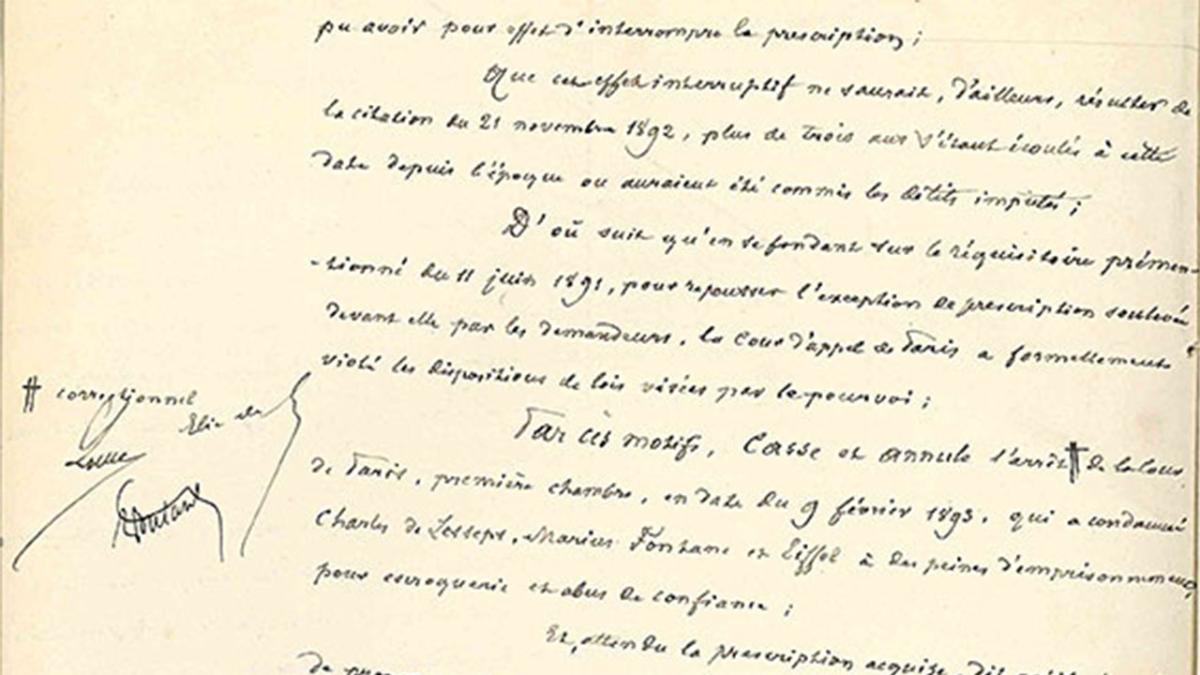 pu avoir pour effet d'interrompre la prescription ;
Que cet effet interruptif ne saurait, d'ailleurs, résulter de
la citation du 21 novembre 1892, plus de trois ans s'étant écoulés à cette
date depuis l'époque où auraient été commis les délits imputés ;
D'où suit qu'en se fondant sur le réquisitoire prémen-
-tionné du 11 juin 1891, pour repousser l'exception de prescription soulevée
devant elle par les demandeurs, la Cour d'appel de Paris a formellement
violé les dispositions de lois visées par le pourvoi ;
Par ces motifs, Casse et annule l'arrêt ‡ de la Cour
de Paris, première chambre, en date du 9 février 1893, qui a condamné
Charles de Lesseps, Marius Fontane et Eiffel à des peines d'emprisonnement,
pour escroquerie et abus de confiance ;
Et, attendu la prescription acquise, dit
de
‡ correctionnel